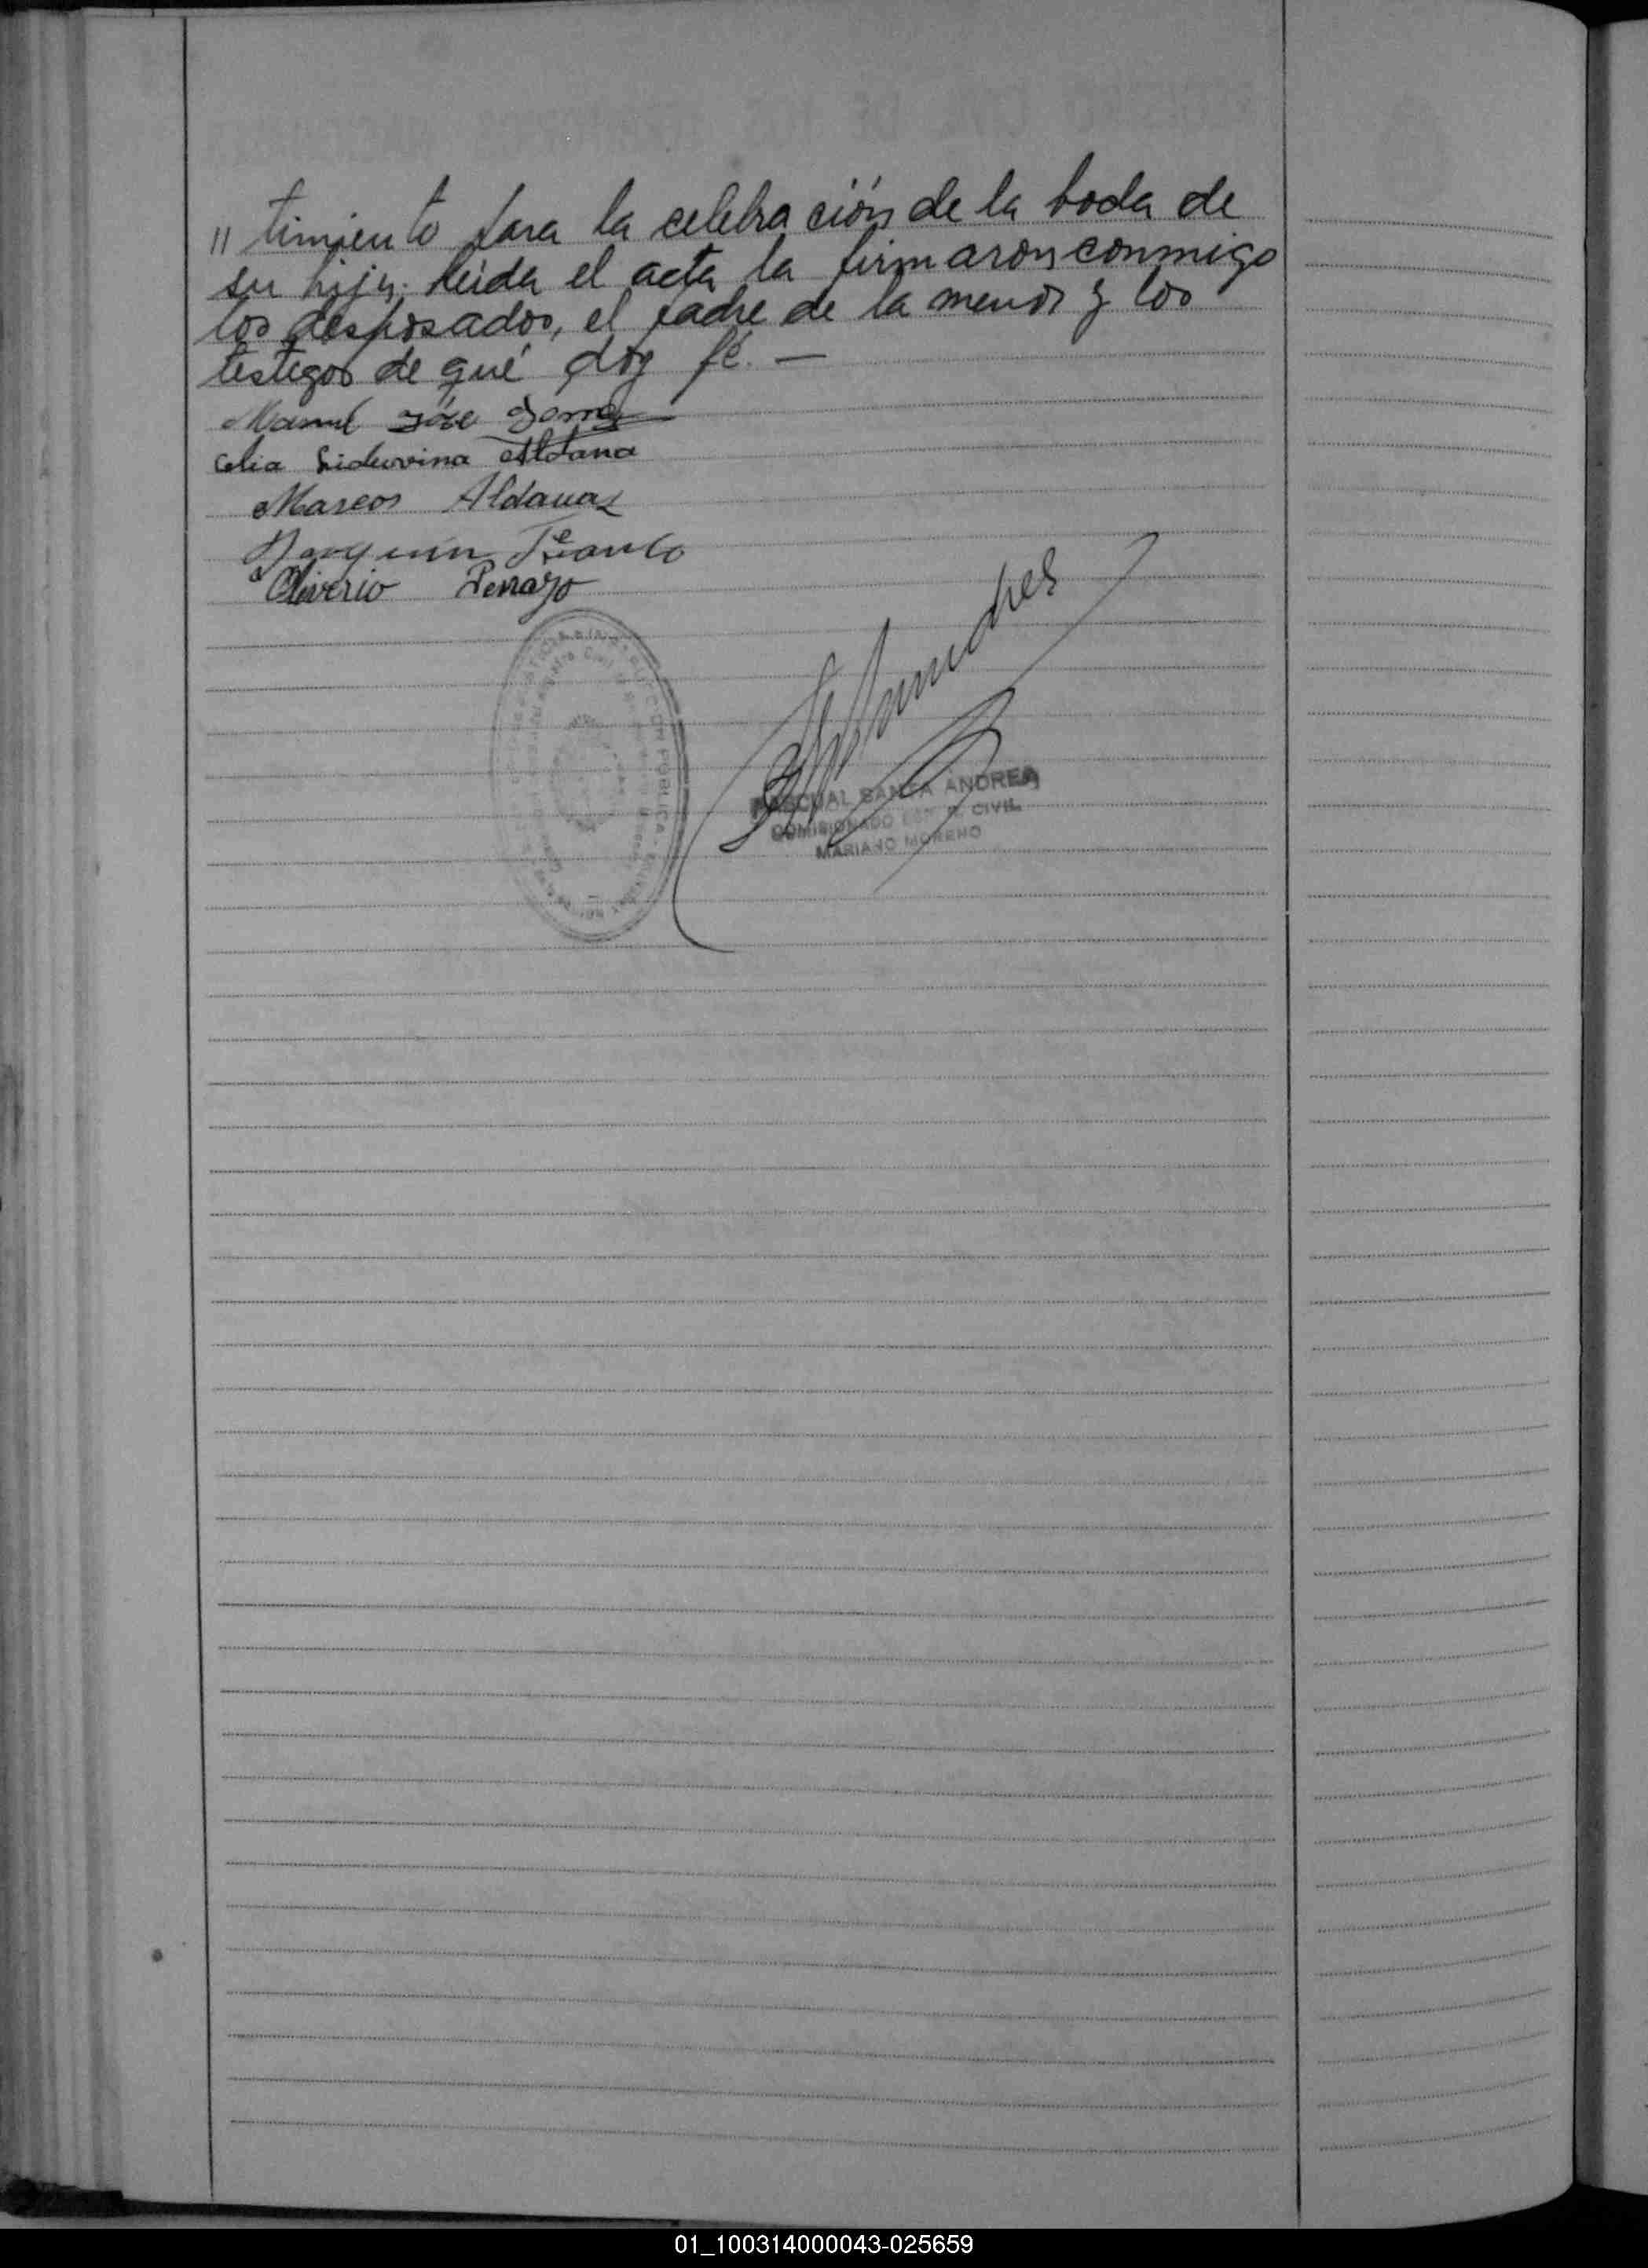 " timiento para la celebración de la boda de
su hija. Leída el acta la firmaron conmigo
los desposados, el padre de la menor y los
testigos de qué doy fé. —
Manuel José
Celia Aldana
Marcos Aldana
Joaquin Franco
Oliverio Penayo
PASCUAL SANTA ANDREA
COMISIONADO CIVIL
MARIANO MORENO
01_100314000043-025659